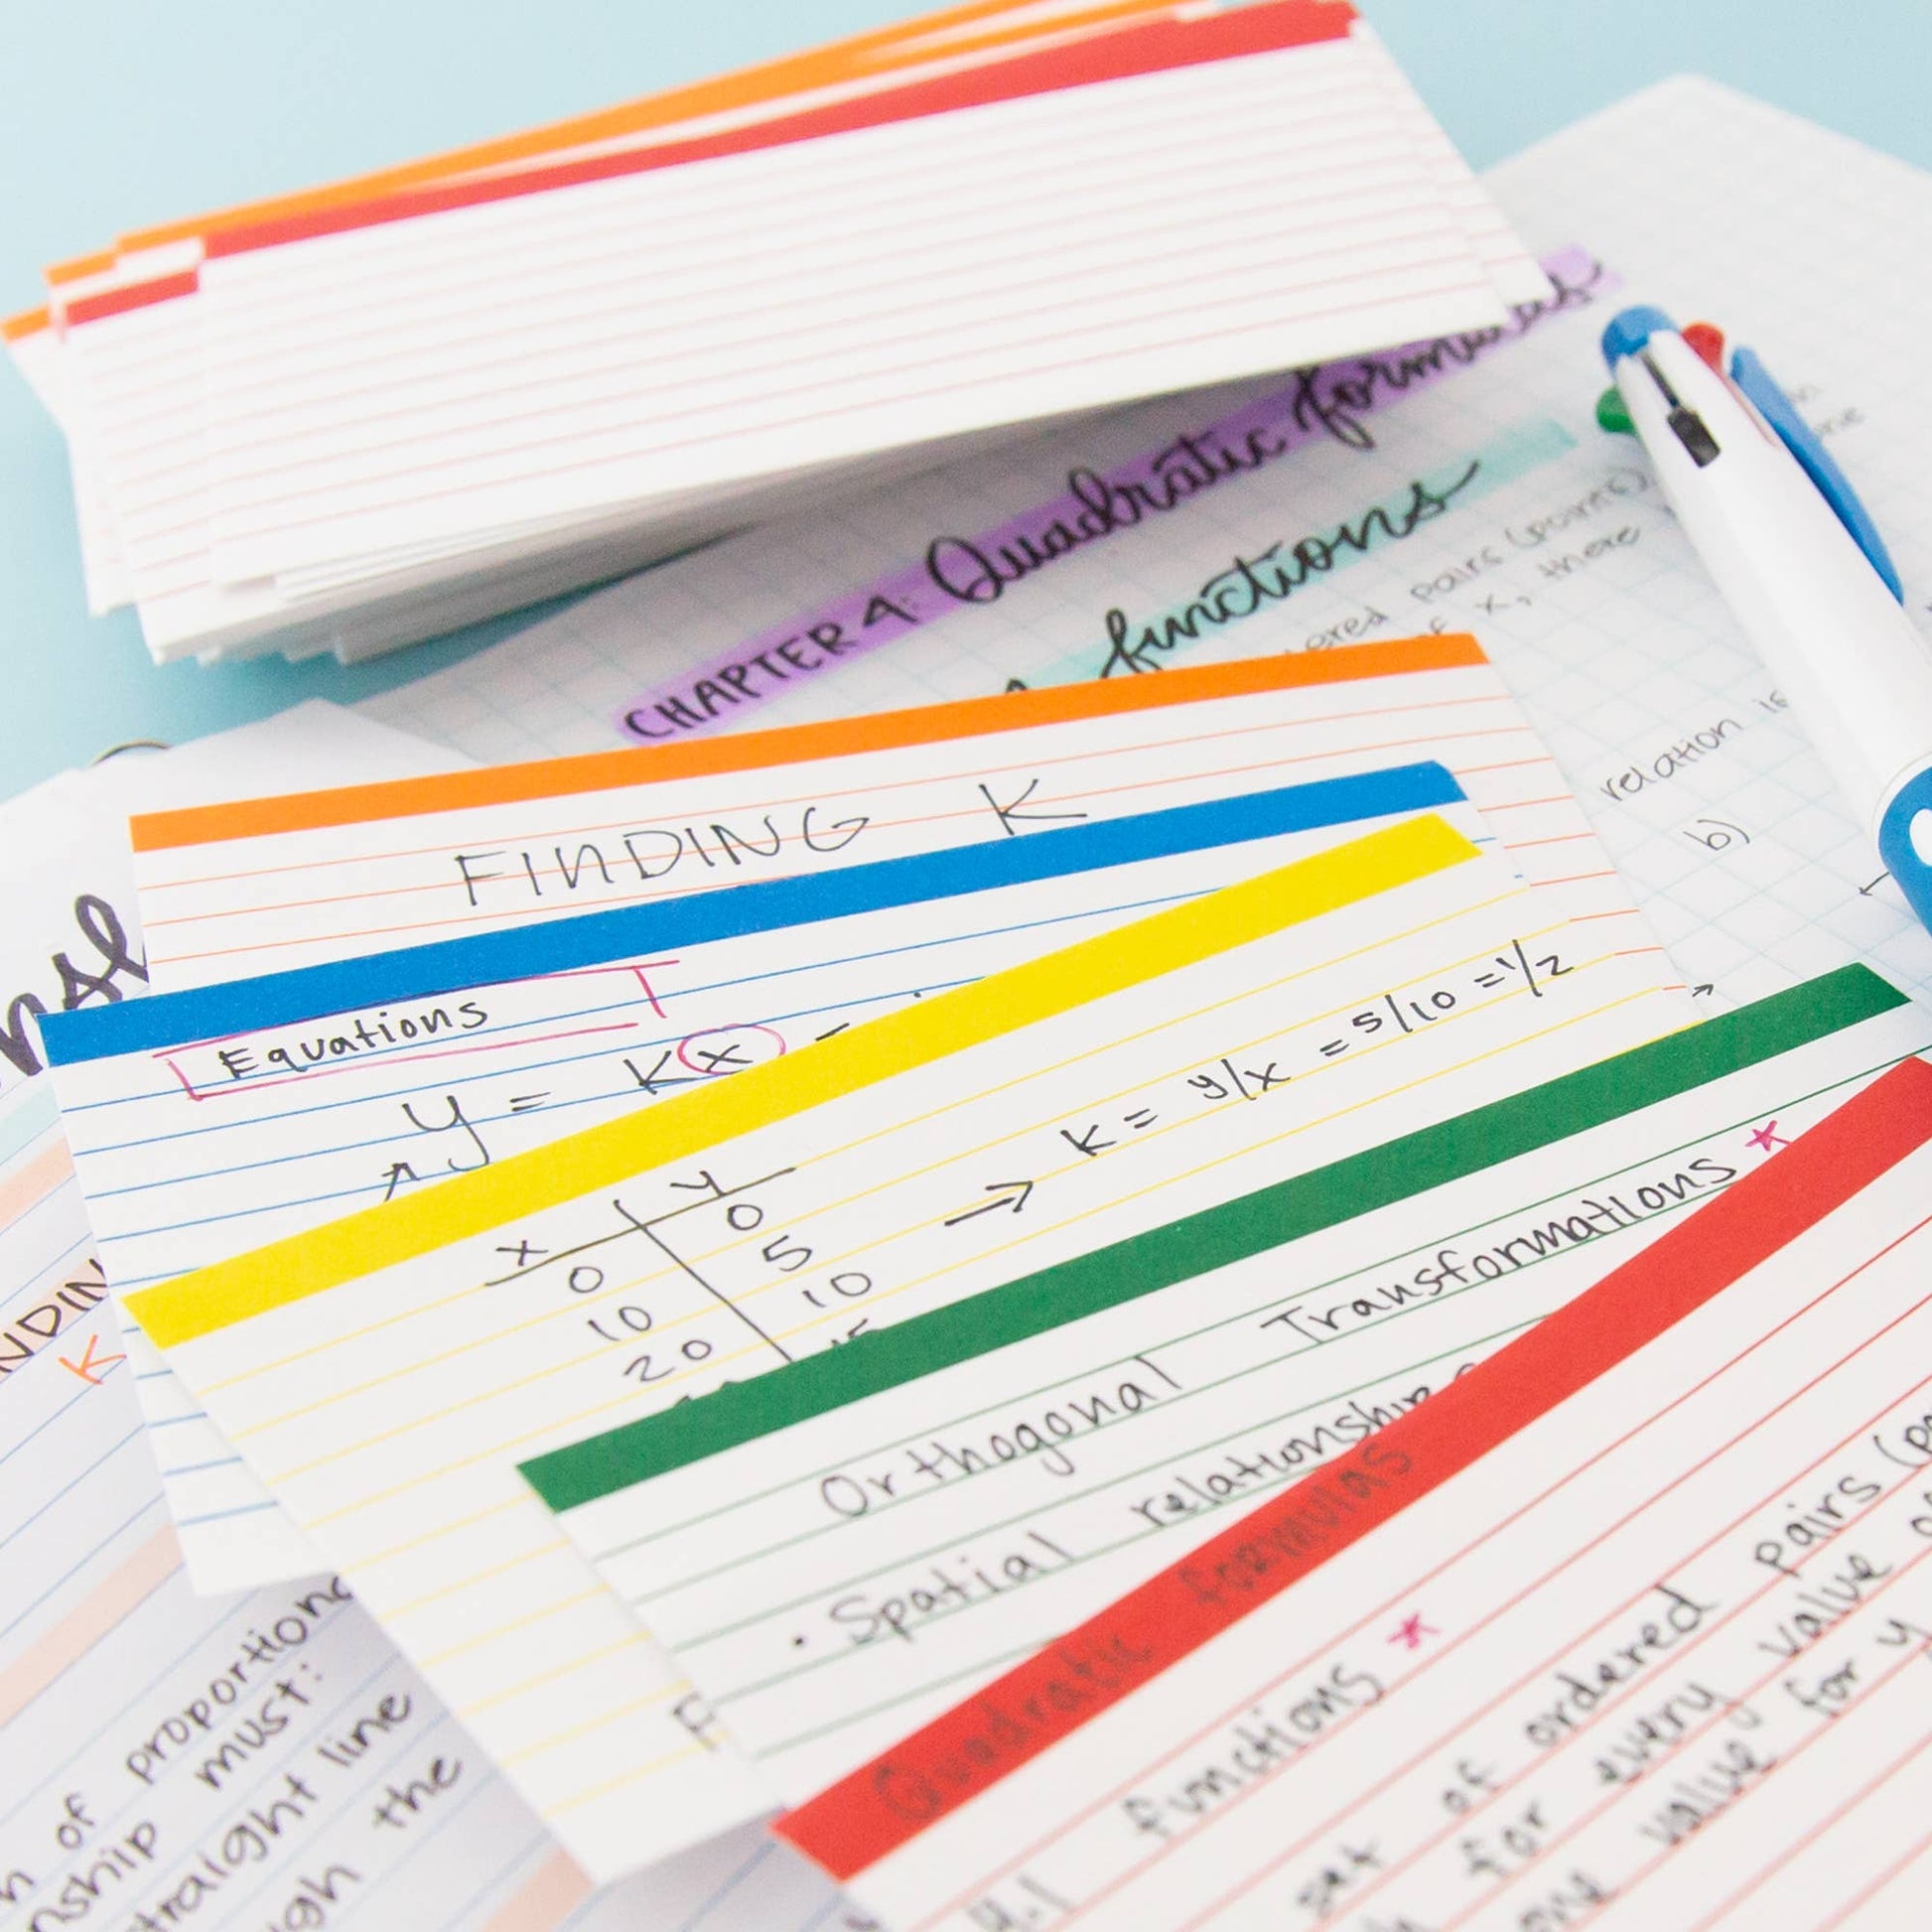 CHAPTER 4: Quadratic formulas
functions
pairs (points)
of x, there
relation is
b)
FINDING K
Equations
y = Kx -
x y
0 0
10 5
20 10
15
k = y/x = 5/10 = 1/2
Orthogonal Transformations *
· Spatial relationships
Quadratic formulas
4.1 functions *
set of ordered pairs
for every value
one value for y
K
of proportional
must:
straight line
the